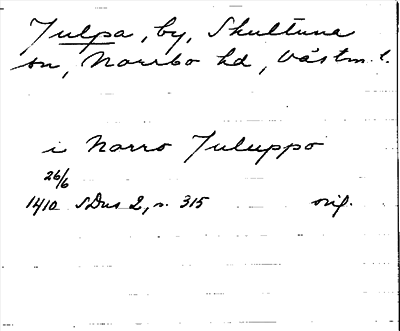 Julpa, by, Skultuna
sn, Norrbo hd, Västm. l.
i Norro Juluppo
26/6
1410 SDns 2, s. 315 orig.